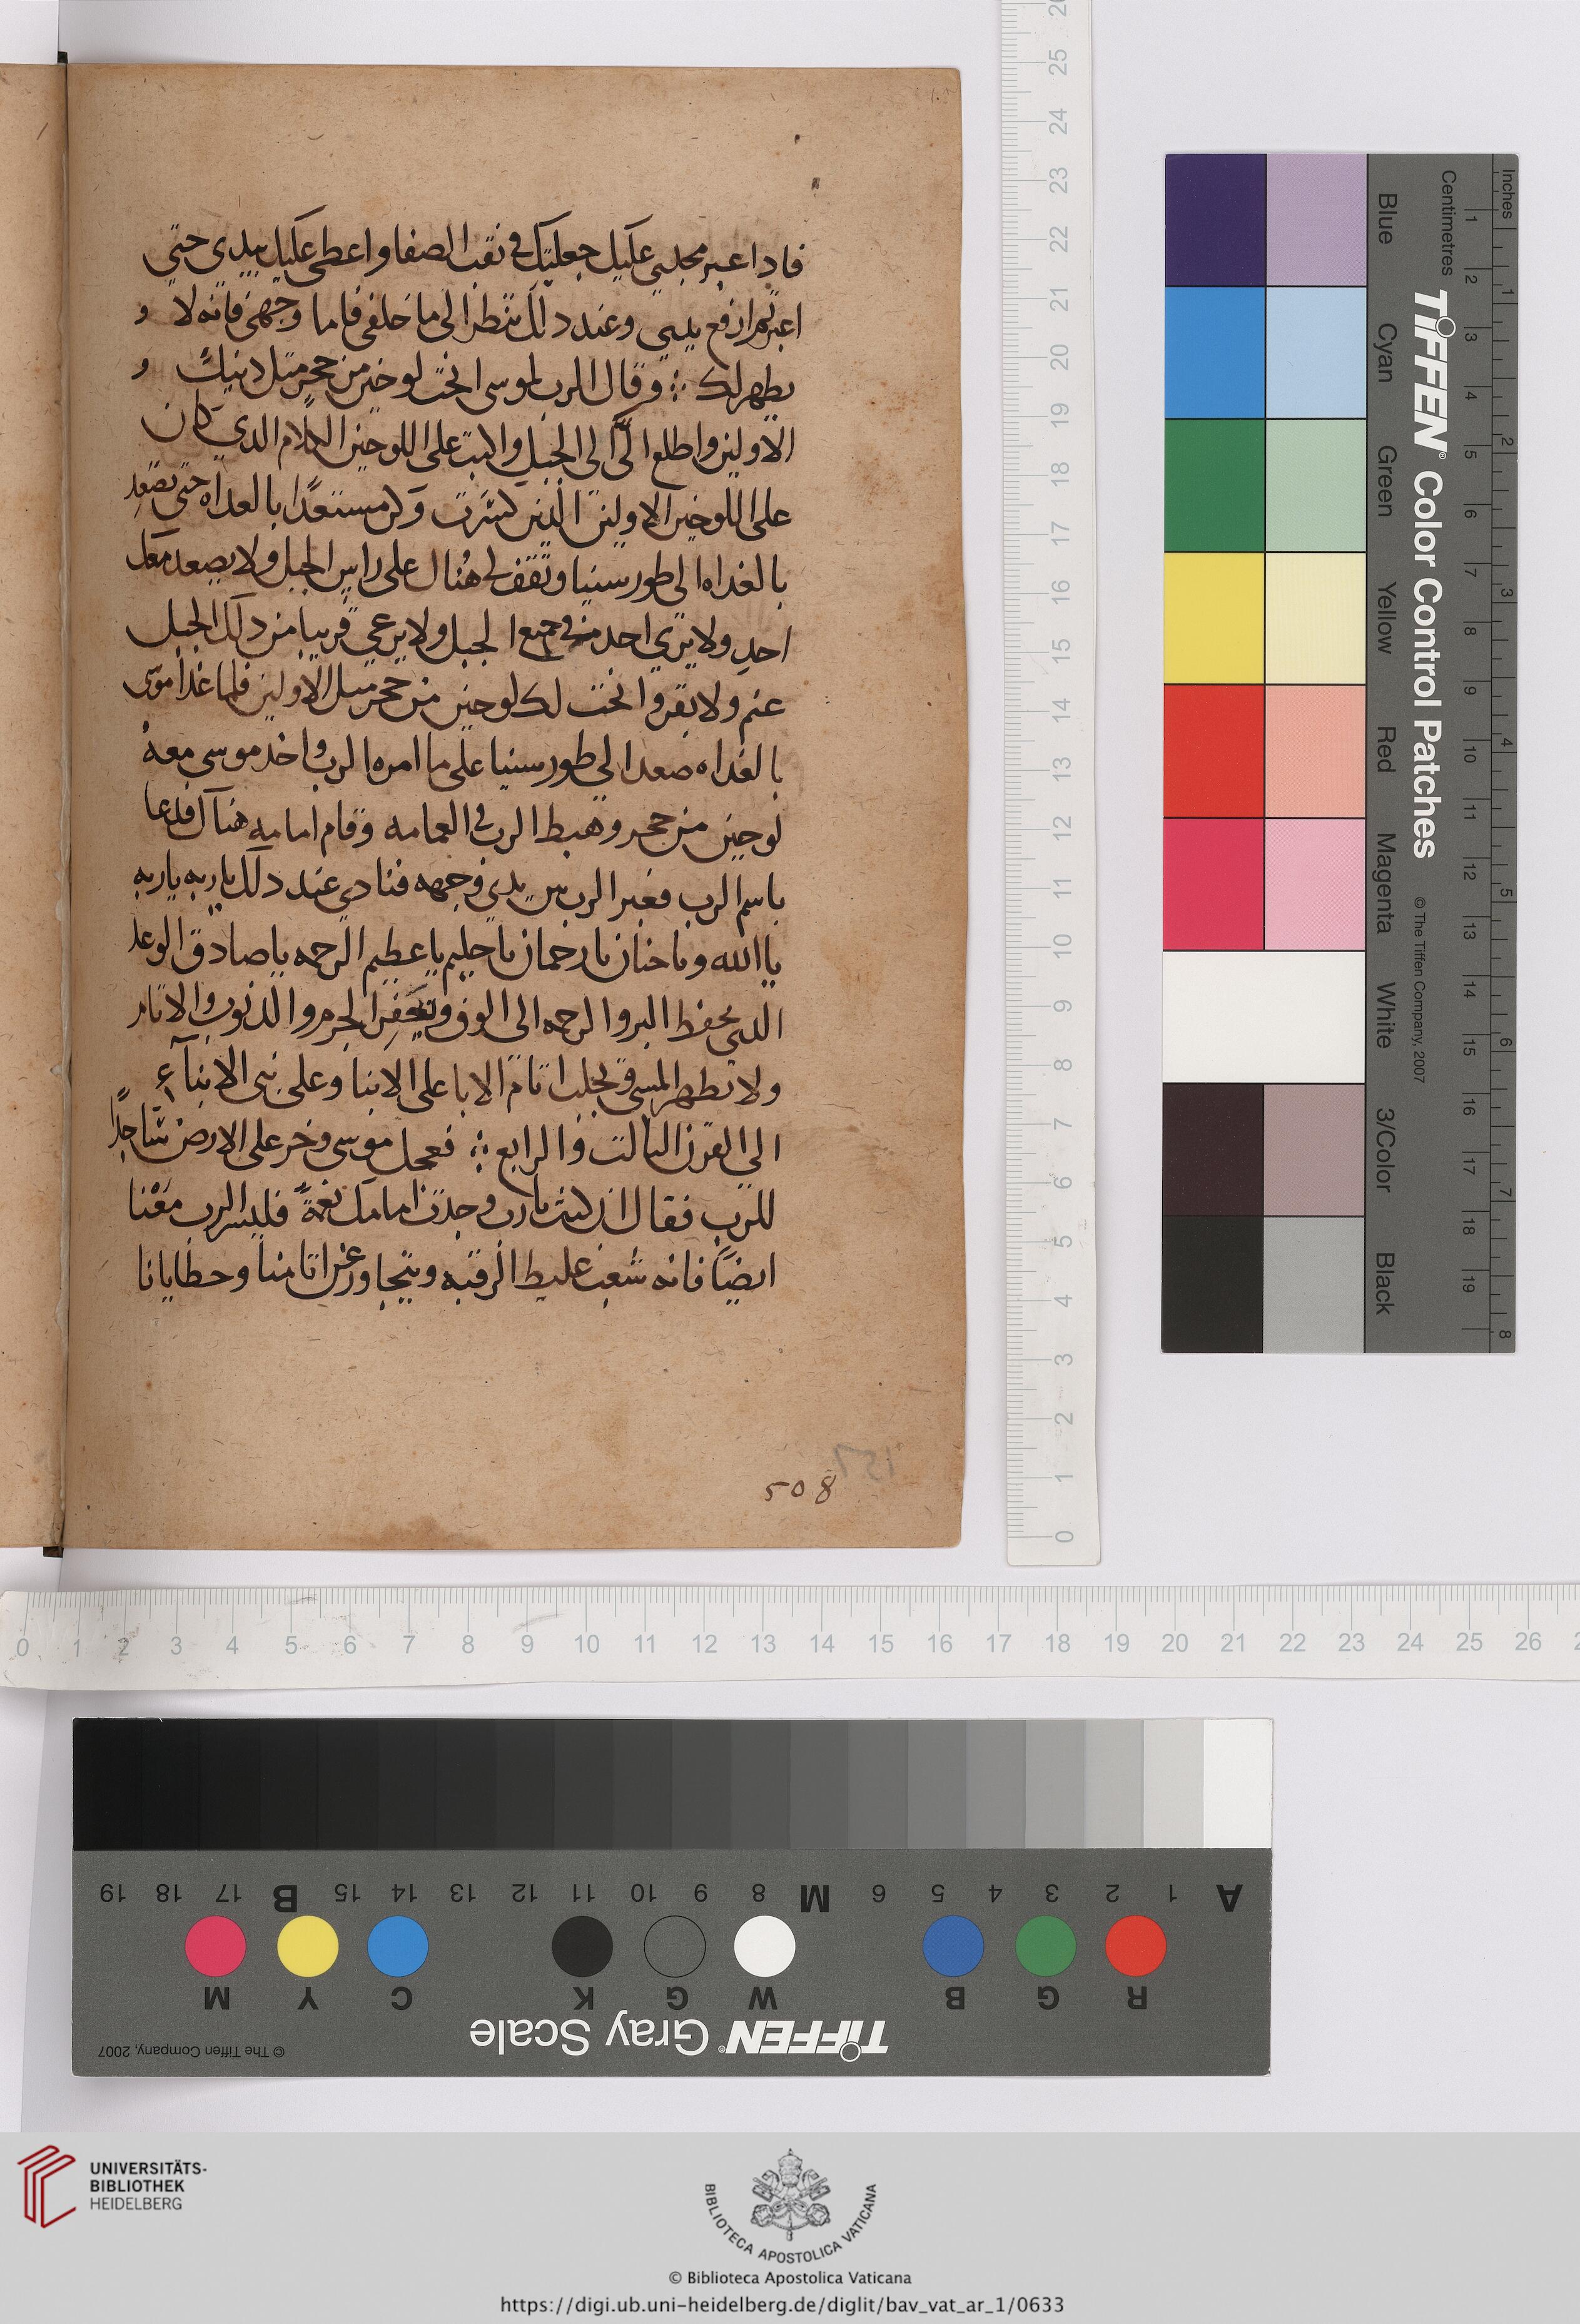 فاذا عبر مجلسي عليك جعلتك في نقب الصفا واعطي عليك بيدي حتى
اعبر ثم ارفع يدي وعند دلك تنظر الى ما خلفي فاما وجهي فانه لا
يظهر لك ؞ وقال الرب لموسى انحت لوحين من حجر متل دنيك
الاولين واطلع اليَّ الى الجبل واكتب على اللوحين الكلام الدي كان
على اللوحين الاولين الدين كسرت وكن مستعدًا بالغداه حتى تصعد
بالغداه الى طور سينا وتقف لي هُناك على راس الجبل ولا يصعد معك
احد ولا يرى احد في جميع الجبل ولا يرعي قريبا من دلك الجبل
غنم ولا بقر وانحت لك لوحين من حجر متل الاولين فلما غدا موسى
بالغداه صعد الى طور سينا على ما امره الرب واخد موسى معهُ
لوحين من حجر وهبط الرب في الغمامه وقام امامه هناك فدعا
باسم الرب فعبر الرب بين يدي وجهه فنادى عند دلك يا ربه يا ربه
يا الله ويا حنان يا رحمان يا حليم يا عظيم الرحمه يا صادق الوعد
الدي يحفظ البر والرحمه الى الوف ويغفر الجرم والدنوب والاتام
ولا تطهر المسي وتجلب اتام الابا على الابنا وعلى بني الابنآء
الى القرن التالت والرابع ؞ فعجل موسى وخر على الارض ساجدًا
للرب فقال ان كنت يا رب وجدت امامك نعمةً فليسر الرب معنا
ايضًا فانه شعب غليط الرقبه ويتجاوز عن اتامنا وخطايانا
508
157
Inches
Centimetres
TIFFEN® Color Control Patches
© The Tiffen Company, 2007
Blue
Cyan
Green
Yellow
Red
Magenta
White
3/Color
Black
A 1 2 3 4 5 6 M 8 9 10 11 12 13 14 15 B 17 18 19
R G B W G K C Y M
TIFFEN® Gray Scale
© The Tiffen Company, 2007
UNIVERSITÄTS-
BIBLIOTHEK
HEIDELBERG
BIBLIOTECA APOSTOLICA VATICANA
© Biblioteca Apostolica Vaticana
https://digi.ub.uni-heidelberg.de/diglit/bav_vat_ar_1/0633